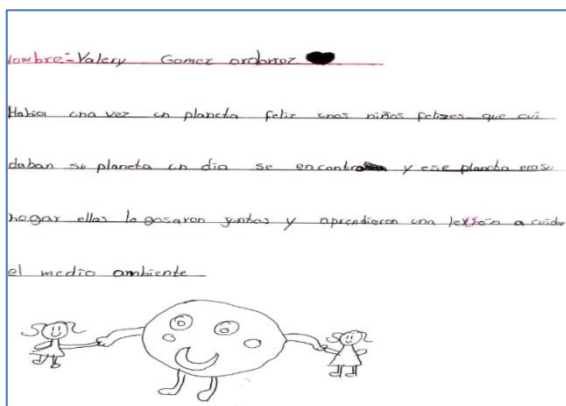 Nombre: Valery Gomez ordoñez
Habia una vez un planeta feliz unas niñas felizes que cui
daban su planeta un dia se encontro y ese planeta era su
hogar ellas lo gosaron juntas y aprendieron una lexsion a cuidar
el medio ambiente